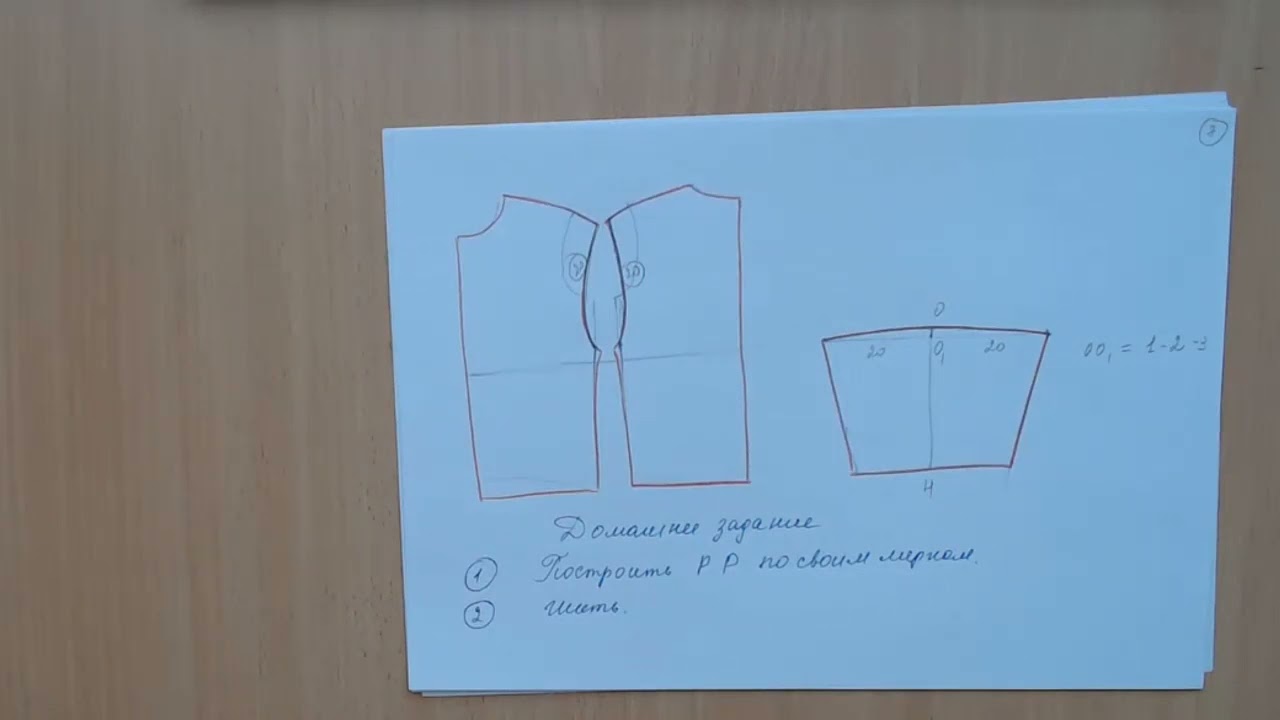 7
О
20 О₁ 20
ОО₁ = 1-2
Н
Домашнее задание
① Построить РР по своим меркам.
② Шить.